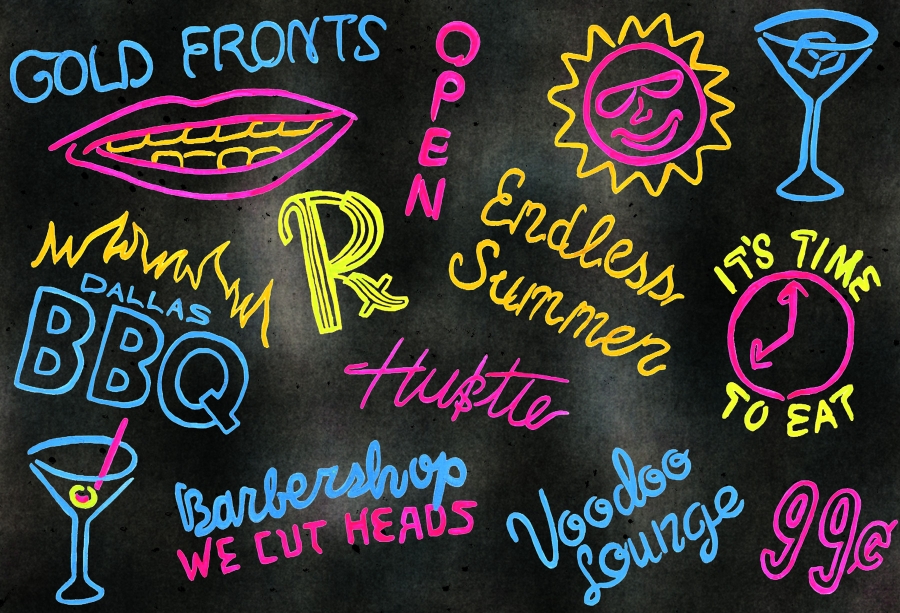 GOLD FRONTS
OPEN
Endless
Summer
℞
IT'S TIME
TO EAT
DALLAS
BBQ
Hu$tle
Barbershop
WE CUT HEADS
Voodoo
Lounge
99¢